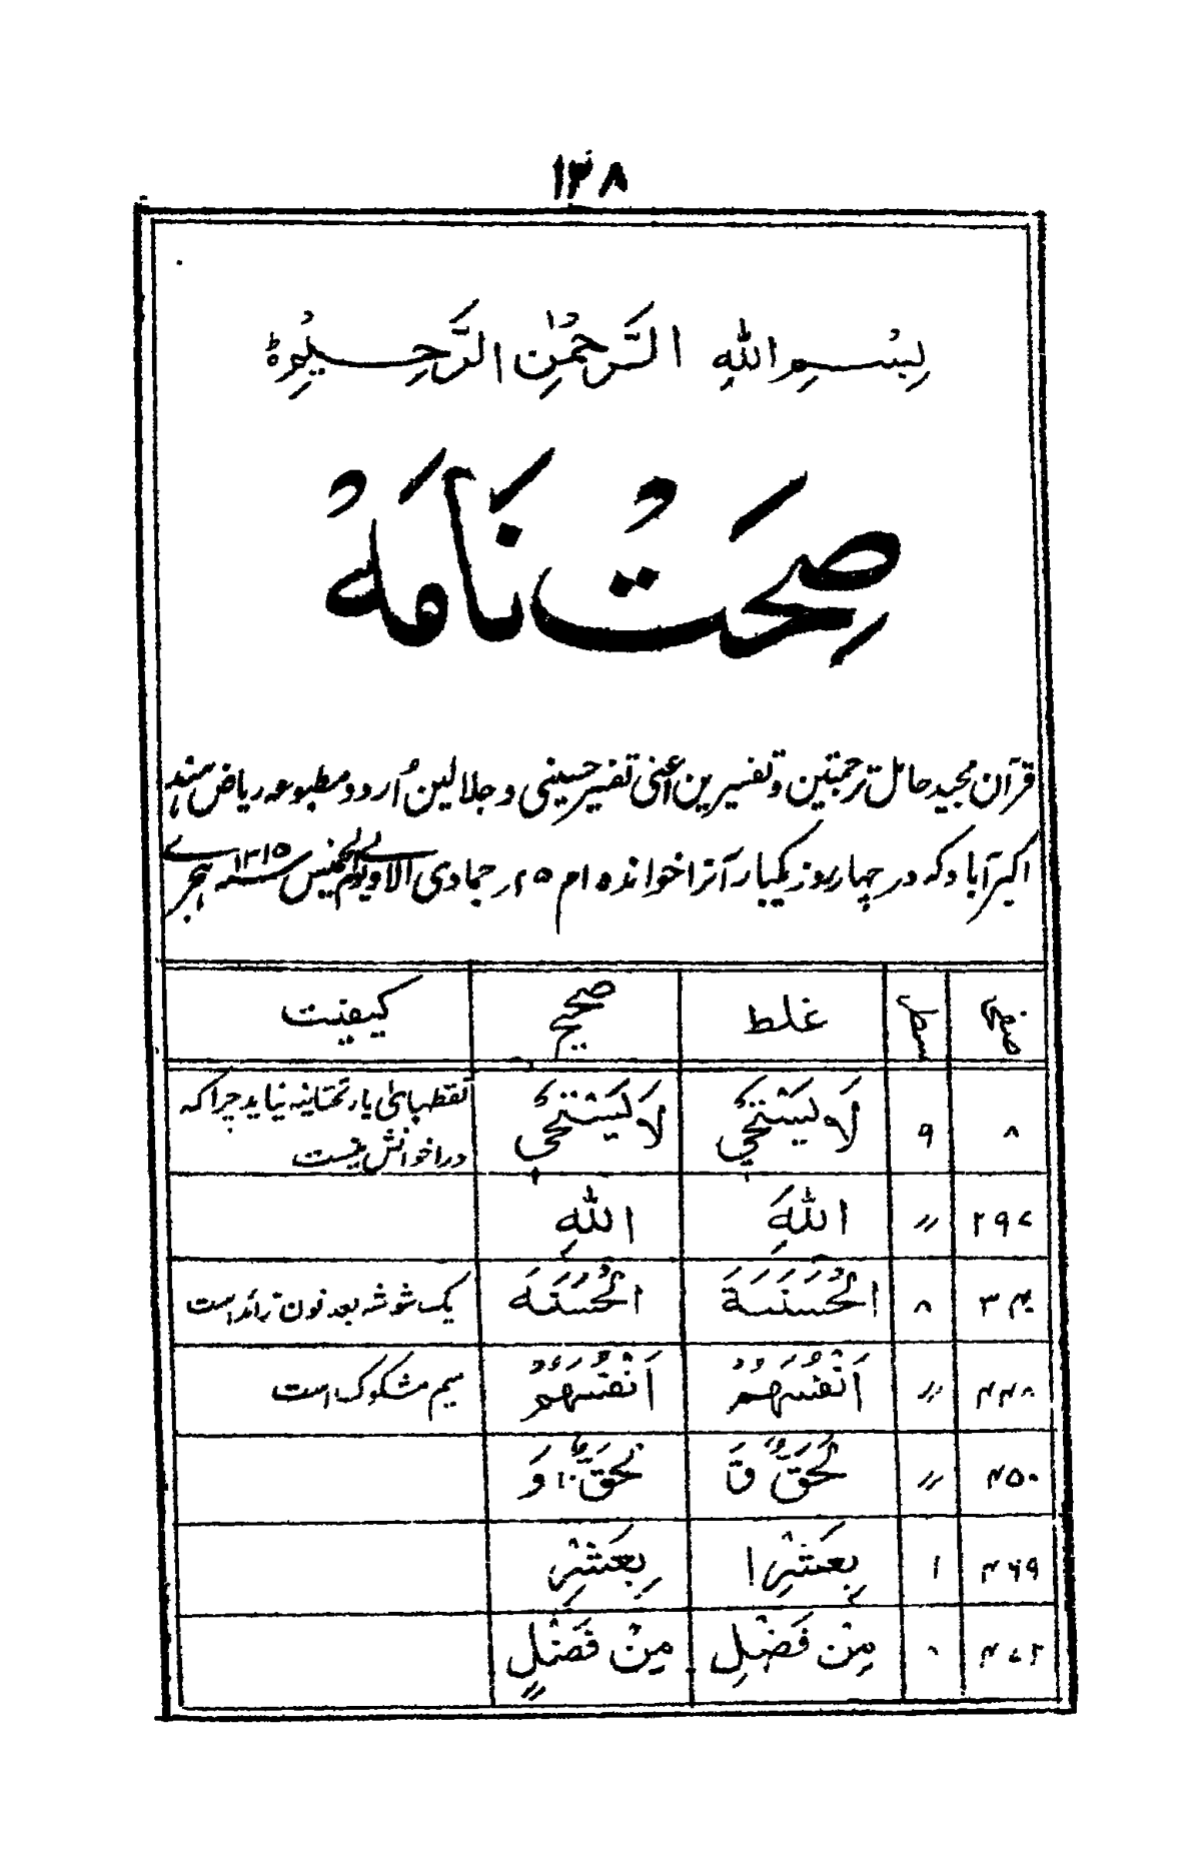 ۱۲۸
بِسْمِ اللّٰهِ الرَّحْمٰنِ الرَّحِيْمِ ۃ
صِحَتْ نَامَهْ
قرآن مجید حامل ترجمتین و تفسیرین اعنی تفسیر حسینی و جلالین اُردو مطبوعہ ریاض ہند
اکبر آباد کہ در چہار روز یکبار آنرا خواندہ ام ۲۵ر جمادی الاولے یوم الخمیس سنہ ۱۳۱۵ ہجرے
صفحہ سطر غلط صحیح کیفیت
۸ ۹ لَا يَسْتَحْيٖ لَا يَسْتَحْیٖ نقطہائ یار تحتانیہ نباید چراکہ
در اخوانش نیست
۲۹۷ // اللّٰهَِ اللّٰهِ
۳۴ ۸ الْحَسَنَسَةَ الْحَسَنَةَ یک شوشہ بعد نون زائد است
۴۴۸ // اَنْفُسَهُمْ اَنْفُسَهُمْ میم مشکوک است
۴۵۰ // لَحَقٌّ قَ لَحَقٌّ وَ
۴۶۹ ۱ بِعَشْرِ ا بِعَشْرِ
۴۷۲ ۸ مِنْ فَضْلِ مِنْ فَضْلٍ